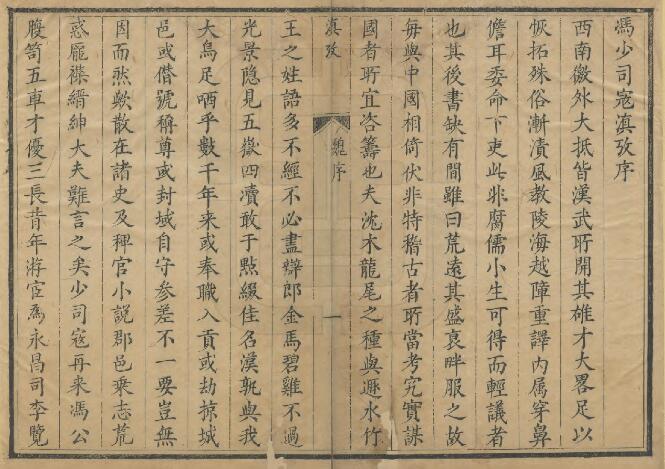 馮少司寇滇攷序
西南徼外大抵皆漢武所開其雄才大畧足以
恢拓殊俗漸漬風教陵海越障重譯内属穿鼻
儋耳委命下吏此非腐儒小生可得而輕議者
也其後書缺有間雖曰荒遠其盛衰畔服之故
每與中國相倚伏非特稽古者所當考究實謀
國者所宜咨籌也夫沈木龍尾之種與遯水竹
滇攷
魏序
一
王之姓語多不經不必盡辯郎金馬碧雞不過
光景隐見五嶽四瀆敢于點綴佳名漢孰與我
大鳥足哂乎數千年来或奉職入貢或劫掠城
邑或僭號稱尊或封域自守参差不一要豈無
因而㸃歟散在諸史及稗官小説郡邑乘志荒
惑龎襍縉紳大夫難言之矣少司寇再来馮公
腹笥五車才優三長昔年游宦為永昌司李覽